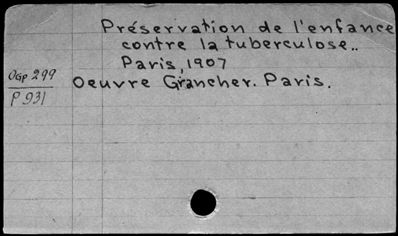 Préservation de l'enfance
contre la tuberculose..
Paris, 1907
Ogp 299
P 931
Oeuvre Grancher. Paris.